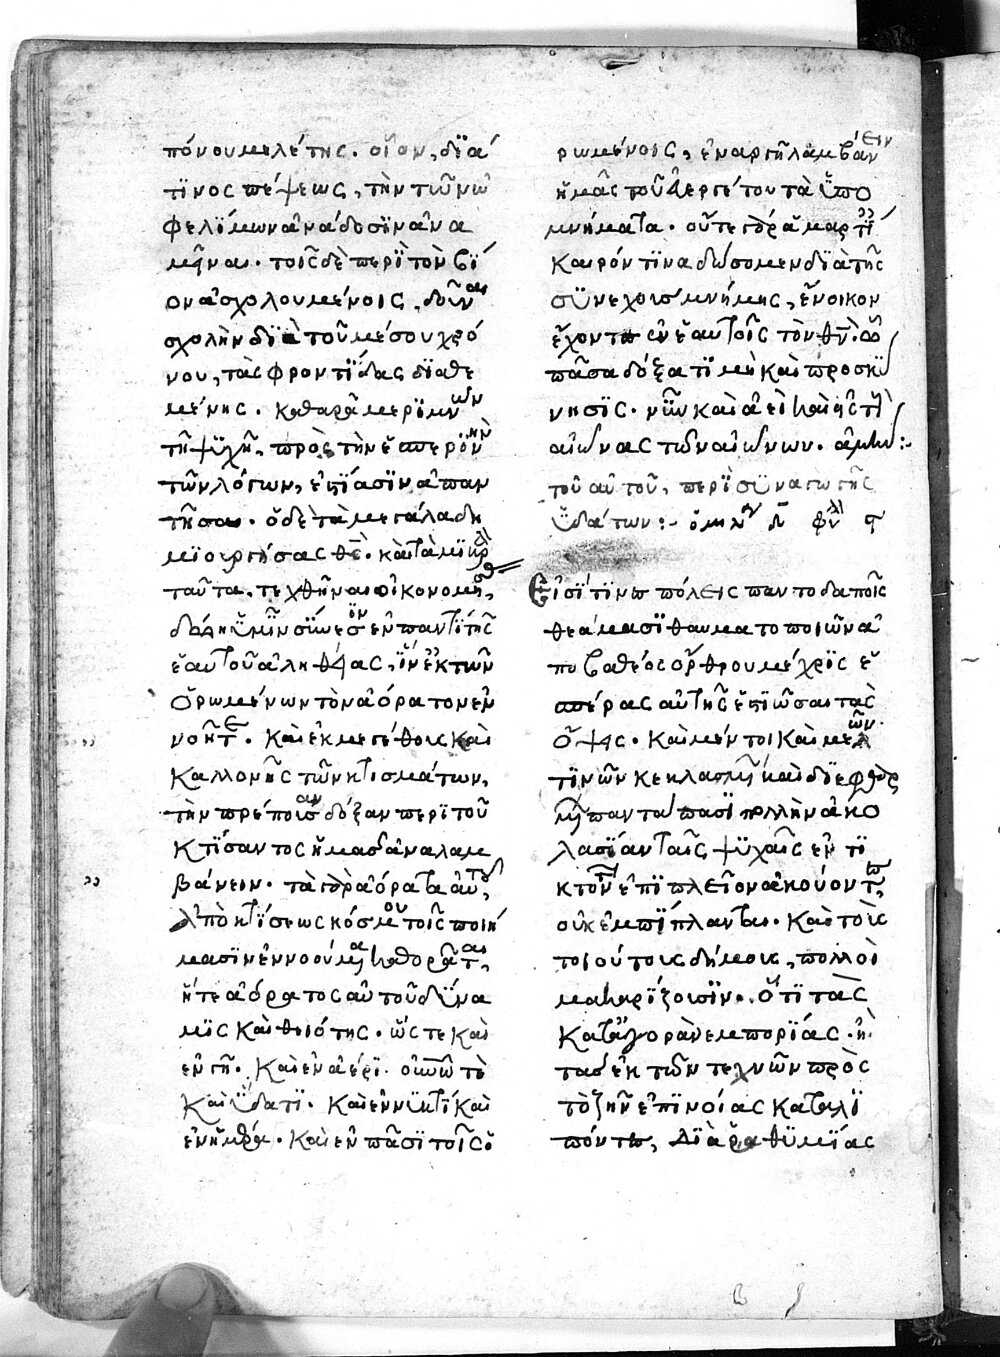 πόνου μελέτης. οἷον, διά
τινος πέψεως, τὴν τῶν ὠ
φελίμων ἀνάδοσιν ἀνα
μεῖναι. τοῖς δὲ περὶ τὸν βί
ον ἀσχολουμένοις, δοῦναι
σχολὴν διὰ τοῦ μέσου χρό
νου, τὰς φροντίδας διαθε
μένης. καθαρᾷ μεριμνῶν
τῇ ψυχῇ, πρὸς τὴν ἑσπερινὴν
τῶν λόγων, ἑστίασιν ἀπαν
τῆσαι. ὁ δὲ τὰ μεγάλα δη
μιουργήσας θς. καὶ τὰ μικρὰ
ταῦτα λεχθῆναι οἰκονομή,
δώῃ ὑμῖν σύνεσιν ἐν παντὶ τῆς
ἑαυτοῦ ἀληθείας, ἵν' ἐκ τῶν
ὁρωμένων τὸν ἀόρατον ἐν
νοῆτε. καὶ ἐκ μεγέθους καὶ
καλλονῆς τῶν κτισμάτων,
τὴν πρέπουσαν δόξαν περὶ τοῦ
κτίσαντος ἡμᾶς ἀναλαμ
βάνειν. τὰ γὰρ ἀόρατα αὐτοῦ,
ἀπὸ κτίσεως κόσμου τοῖς ποιή
μασιν ἐννοούμενα καθορᾶται,
ἥτε ἀόρατος αὐτοῦ δύνα
μις καὶ θειότης. ὥστε καὶ
ἐν γῇ. καὶ ἐν ἀέρι. οὐνῷ τὲ
καὶ ὕδατι. καὶ ἐν νυκτὶ καὶ
ἐν ἡμέρᾳ. καὶ ἐν πᾶσι τοῖς ὁ
ρωμένοις, ἐναργῆ λαμβάνειν
ἡμᾶς τοῦ εὐεργέτου τὰ ὑπο
μνήματα. οὔτε γὰρ ἁμαρτί
καιρόν τινα δώσομεν διὰ τῆς
συνεχοῦς μνήμης, ἔνοικον
ἔχοντες ἐν ἑαυτοῖς τὸν θν. ᾧ
πᾶσα δόξα τιμὴ καὶ προσκύ
νησις. νῦν καὶ ἀεὶ καὶ εἰς τοὺς
αἰῶνας τῶν αἰώνων. ἀμήν:·
τοῦ αὐτοῦ, περὶ συναγωγῆς
ὑδάτων:-
Εἰσί τινες πόλεις παντοδαποῖς
θεάμασι θαυματοποιῶν ἀ
πὸ βαθέος ὄρθρου μέχρις ἑ
σπέρας αὐτῆς ἑστιῶσαι τὰς
ὄψεις. καὶ μέντοι καὶ μελῶν
τινῶν κεκλασμένων καὶ διεφθαρ
μένων πάντα πᾶσι πολλὴν ἀκο
λασίαν ταῖς ψυχαῖς ἐντι
κτόντων ἐπὶ πλεῖον ἀκούοντες,
οὐκ ἐμπίπλανται. καὶ τοὺς
τοιούτους δήμους, πολλοὶ
μακαρίζουσιν. ὅτι τὰς
κατ' ἀγορὰν ἐμπορίας. ἢ
τὰς ἐκ τῶν τεχνῶν πρὸς
τὸ ζῆν ἐπινοίας καταλι
πόντες, διὰ ῥᾳθυμίας